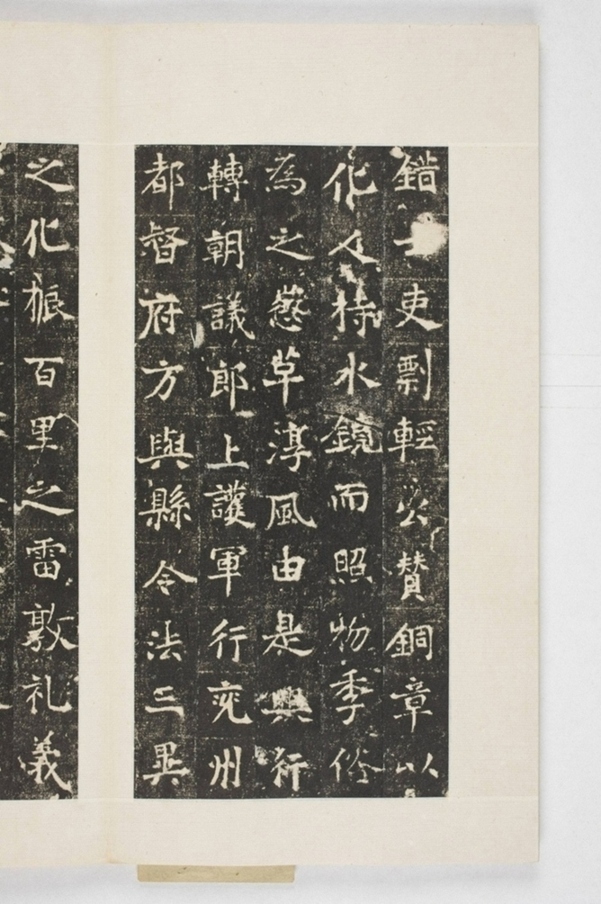 錯吏剽輕公贊銅章以
化人持水鏡而照物季俗
為之懲草淳風由是興行
轉朝議郎上護軍行兖州
都督府方與縣令法三異
之化振百里之雷敦礼義